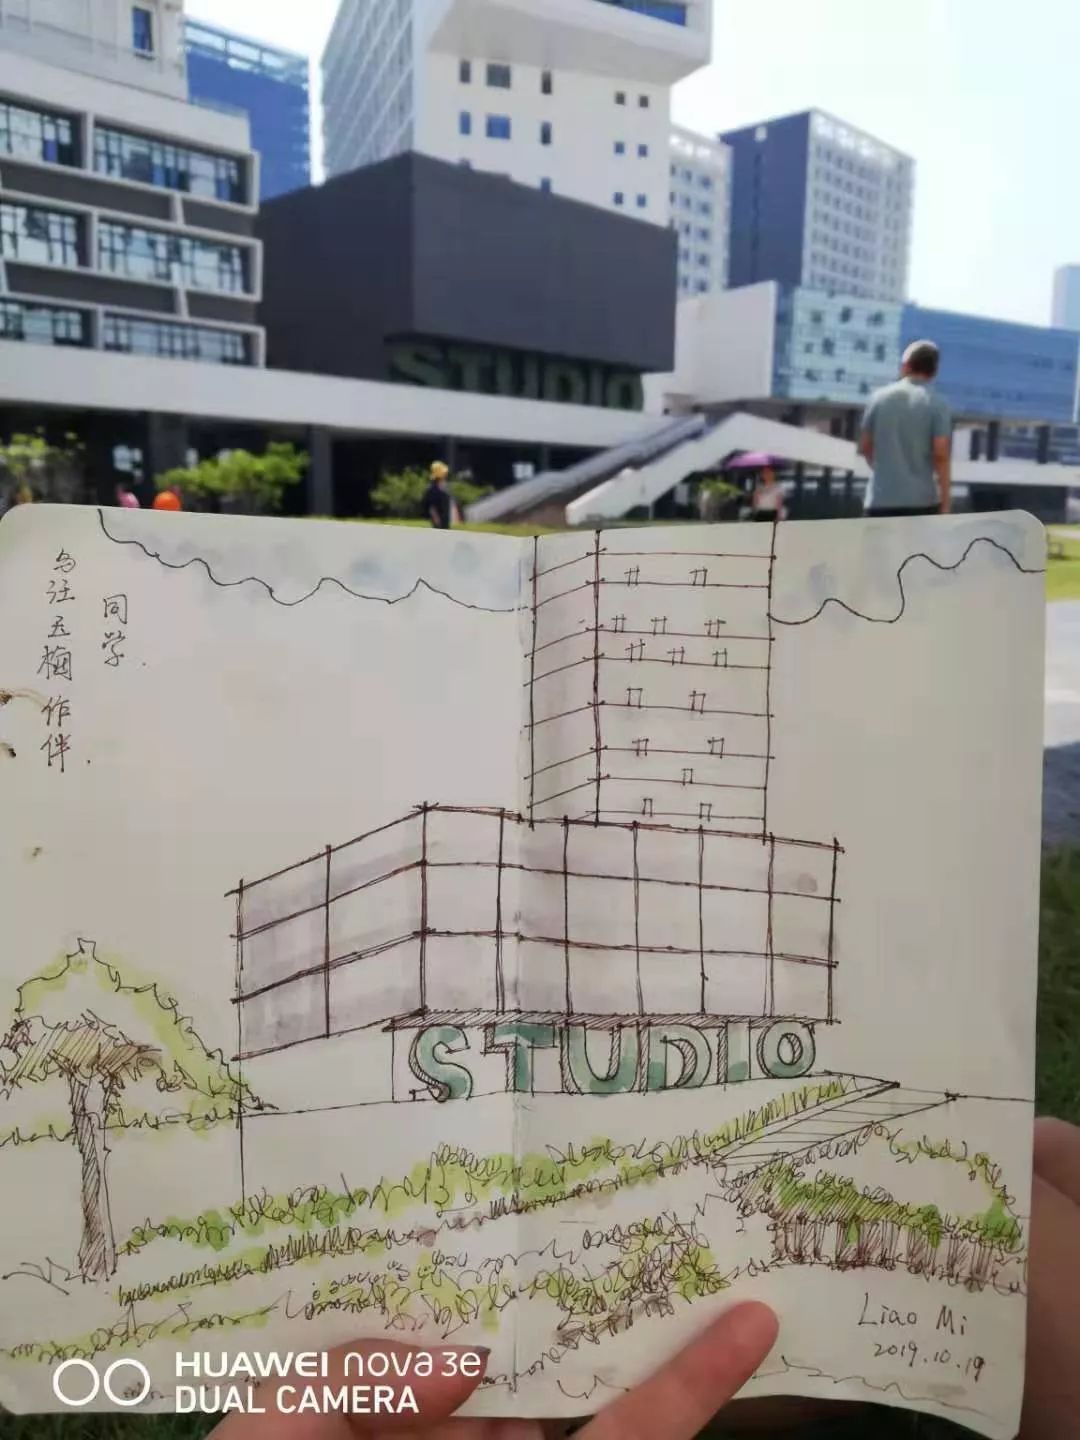 STUDIO
同学.
与汪玉梅作伴.
STUDIO
Liao Mi
2019.10.19
HUAWEI nova 3e
DUAL CAMERA